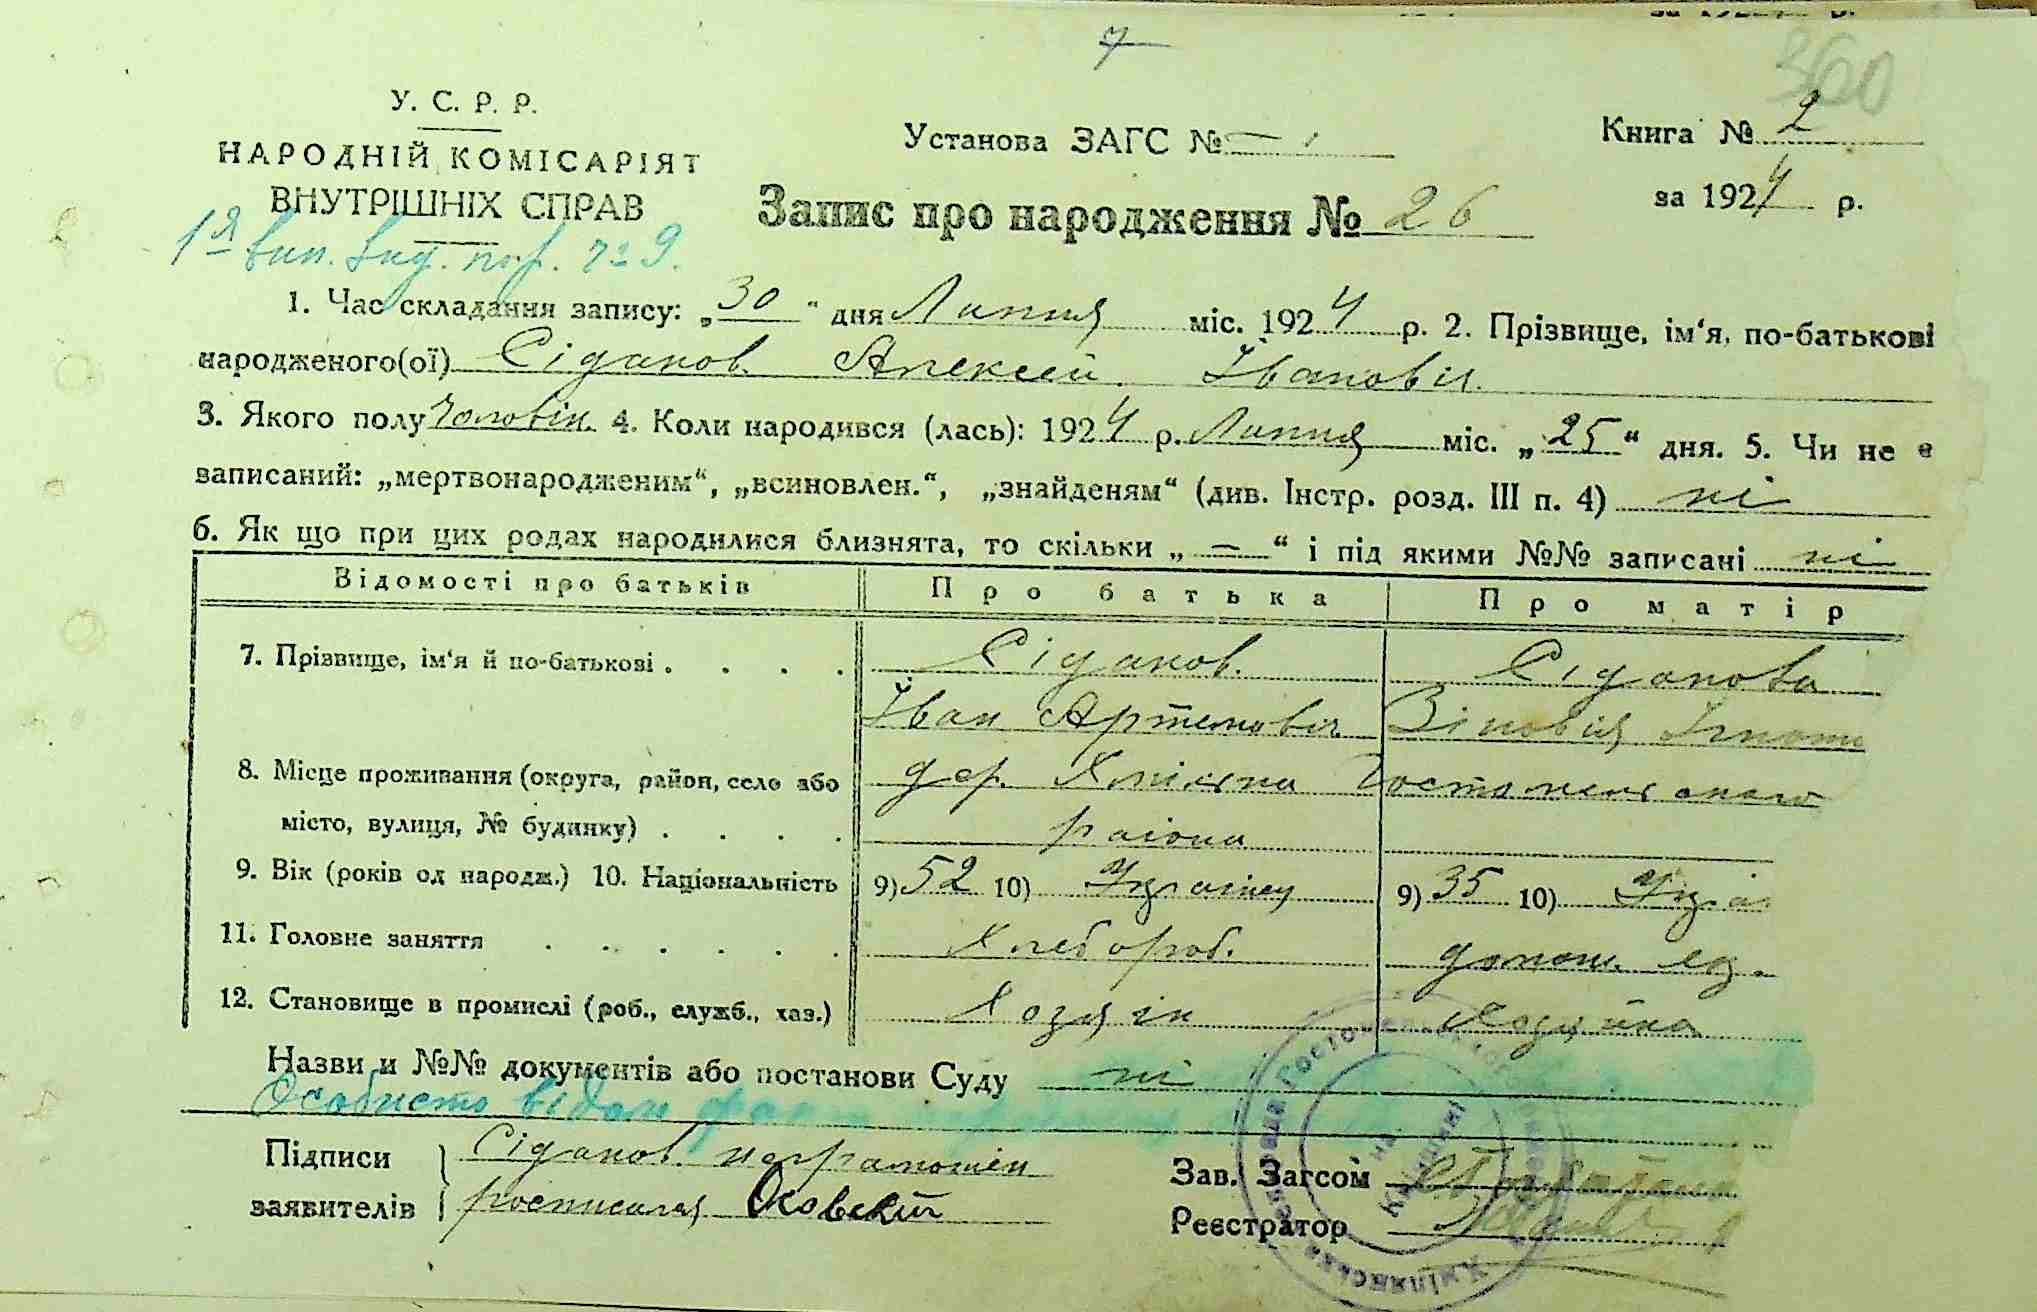 7
360
У. С. Р. Р.
НАРОДНІЙ КОМІСАРІЯТ
ВНУТРІШНІХ СПРАВ
Установа ЗАГС № —
Книга № 2
за 1924 р.
Запис про народження № 26
1. Час складання запису: „30“ дня Липня міс. 1924 р. 2. Прізвище, ім‘я, по-батькові
народженого(ої) Сіданов. Алексей. Івановіч.
3. Якого полу чоловін. 4. Коли народився (лась): 1924 р. Липня міс. „25“ дня. 5. Чи не є
записаний: „мертвонародженим“, „всиновлен.“, „знайденям“ (див. Інстр. розд. III п. 4) ні
6. Як що при цих родах народилися близнята, то скільки „ — “ і під якими №№ записані ні
Відомості про батьків Про батька Про матір
7. Прізвище, ім‘я й по-батькові . . . . Сіданов. Сіданова
Іван Артемовіч Зіновія
8. Місце проживання (округа, район, село або дер. Хміляна Гостомельського
місто, вулиця, № будинку) . . . . раіона
9. Вік (років од народж.) 10. Національність 9) 52 10) Украінец 9) 35 10) Украі
11. Головне заняття . . . . . . Хлебороб.
12. Становище в промислі (роб., служб., хаз.) Хозяін Хозяйка
Назви и №№ документів або постанови Суду ні
Особисто
Підписи Сіданов. неграмотен
заявителів росписался Осовский
Зав. Загсом
Реєстратор